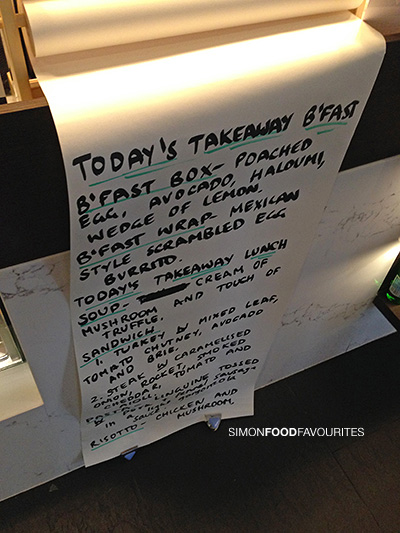 TODAY'S TAKEAWAY B'FAST
B'FAST BOX- POACHED
EGG, AVOCADO, HALOUMI,
WEDGE OF LEMON.
B'FAST WRAP- MEXICAN
STYLE SCRAMBLED EGG
BURRITO.
TODAY'S TAKEAWAY LUNCH
SOUP- CREAM OF
MUSHROOM AND TOUCH OF
TRUFFLE.
SANDWICH
1. TURKEY W MIXED LEAF,
TOMATO CHUTNEY, AVOCADO
AND BRIE.
2. STEAK W CARAMELISED
ONION, ROCKET, SMOKED
CHEDDAR, TOMATO AND
LINGUINE TOSSED
in a SAUSAGE
RISOTTO- CHICKEN AND
MUSHROOM,
SIMONFOODFAVOURITES